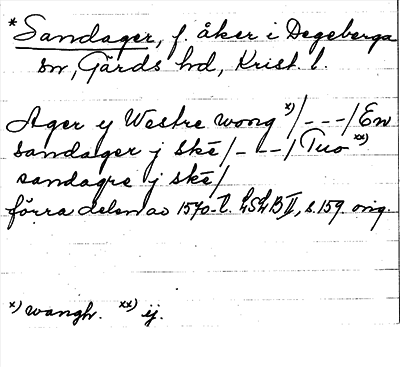 *Sandager, f. åker i Degeberga
sn, Gärds hd, Krist. l.
Ager ij Westre wong x)/---/En
sandager j skē/---/Tuo xx)
sandagre j skē/
förra delen av 1570-t. LSLB II, s. 159. orig.
x) wangh. xx) ij.